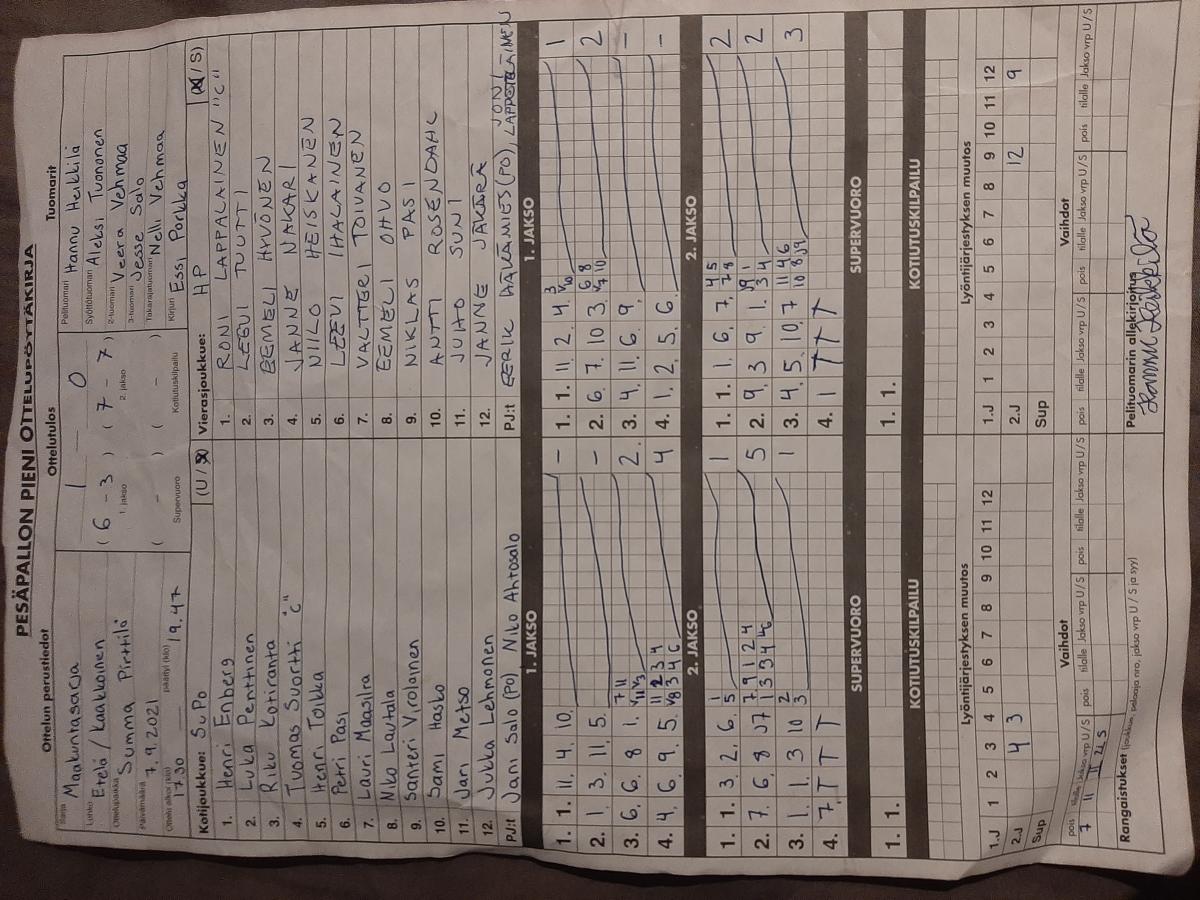 PESÄPALLON PIENI OTTELUPÖYTÄKIRJA
Ottelun perustiedot
Sarja Maakuntasarja
Lohko Etelä/Kaakkoinen
Ottelupaikka Summa Pirttilä
Päivämäärä 7.9.2021
Ottelu alkoi (klo) 17.30 päättyi (klo) 19.47
Ottelutulos
1 - 0
(6 - 3) (7 - 7)
1. jakso 2. jakso
( - ) ( - )
Supervuoro Kotiutuskilpailu
Tuomarit
Pelituomari Hannu Heikkilä
Syöttötuomari Aleksi Tuononen
2-tuomari Veera Vehmaa
3-tuomari Jesse Salo
Takarajatuomari Nelli Vehmaa
Kirjuri Essi Porkka
Kotijoukkue: SuPo (U/S)
1. Henri Enberg
2. Luka Penttinen
3. Riku Koriranta
4. Tuomas Suortti "c"
5. Henri Toikka
6. Petri Pasi
7. Lauri Maasilta
8. Niko Lautala
9. Santeri Virolainen
10. Sami Hasko
11. Jari Metso
12. Jukka Lehmonen
PJ:t Jani Salo (PO), Niko Ahtosalo
Vierasjoukkue: HP (U/S)
1. RONI LAPPALAINEN "C"
2. LEEVI TUTTI
3. EEMELI HYVÖNEN
4. JANNE NAKARI
5. NIILO HEISKANEN
6. LEEVI IHALAINEN
7. VALTTERI TOIVANEN
8. EEMELI OHVO
9. NIKLAS PASI
10. ANTTI ROSENDAHL
11. JUHO SUNI
12. JANNE JÄKÄRÄ
PJ:t EERIK HÄKÄMIES (PO), JONI LAPPETELÄINEN
1. JAKSO
1. 1. 11. 4. 10. -
2. 1. 3. 11. 5. -
3. 6. 6. 8 1. 7 11 2.
4. 4. 6. 9. 5. 11 2 3 4 V8 3 4 6 4
1. JAKSO
1. 1. 11. 2. 4. 3 V10 1
2. 6. 7. 10 3. 6 8 V7 10 2
3. 4. 11. 6. 9. -
4. 1. 2. 5. 6. -
2. JAKSO
1. 1. 3. 2. 6. 1 5 1
2. 7. 6. 8 J7 7 9 1 2 4 1 3 3 4 6 5
3. 1. 1. 3 10 2 3 1
4. 7. T T T
2. JAKSO
1. 1. 1. 6. 7. 4 5 7 8 2
2. 9. 3 9 1. J9 1 3 4 2
3. 4. 5. 10. 7 11 4 6 10 8 J9 3
4. 1 T T T
SUPERVUORO
1. 1.
SUPERVUORO
1. 1.
KOTIUTUSKILPAILU
KOTIUTUSKILPAILU
Lyöntijärjestyksen muutos
1 2 3 4 5 6 7 8 9 10 11 12
1.J
2.J 4 3
Sup
Lyöntijärjestyksen muutos
1 2 3 4 5 6 7 8 9 10 11 12
1.J
2.J 12 9
Sup
Vaihdot
pois tilalle Jakso vrp U / S pois tilalle Jakso vrp U / S pois tilalle Jakso vrp U / S
7 11 II 2 S
Vaihdot
pois tilalle Jakso vrp U / S pois tilalle Jakso vrp U / S pois tilalle Jakso vrp U / S
Rangaistukset (joukkue, pelaaja nro, jakso vrp U / S ja syy)
Pelituomarin allekirjoitus
Hannu Heikkilä